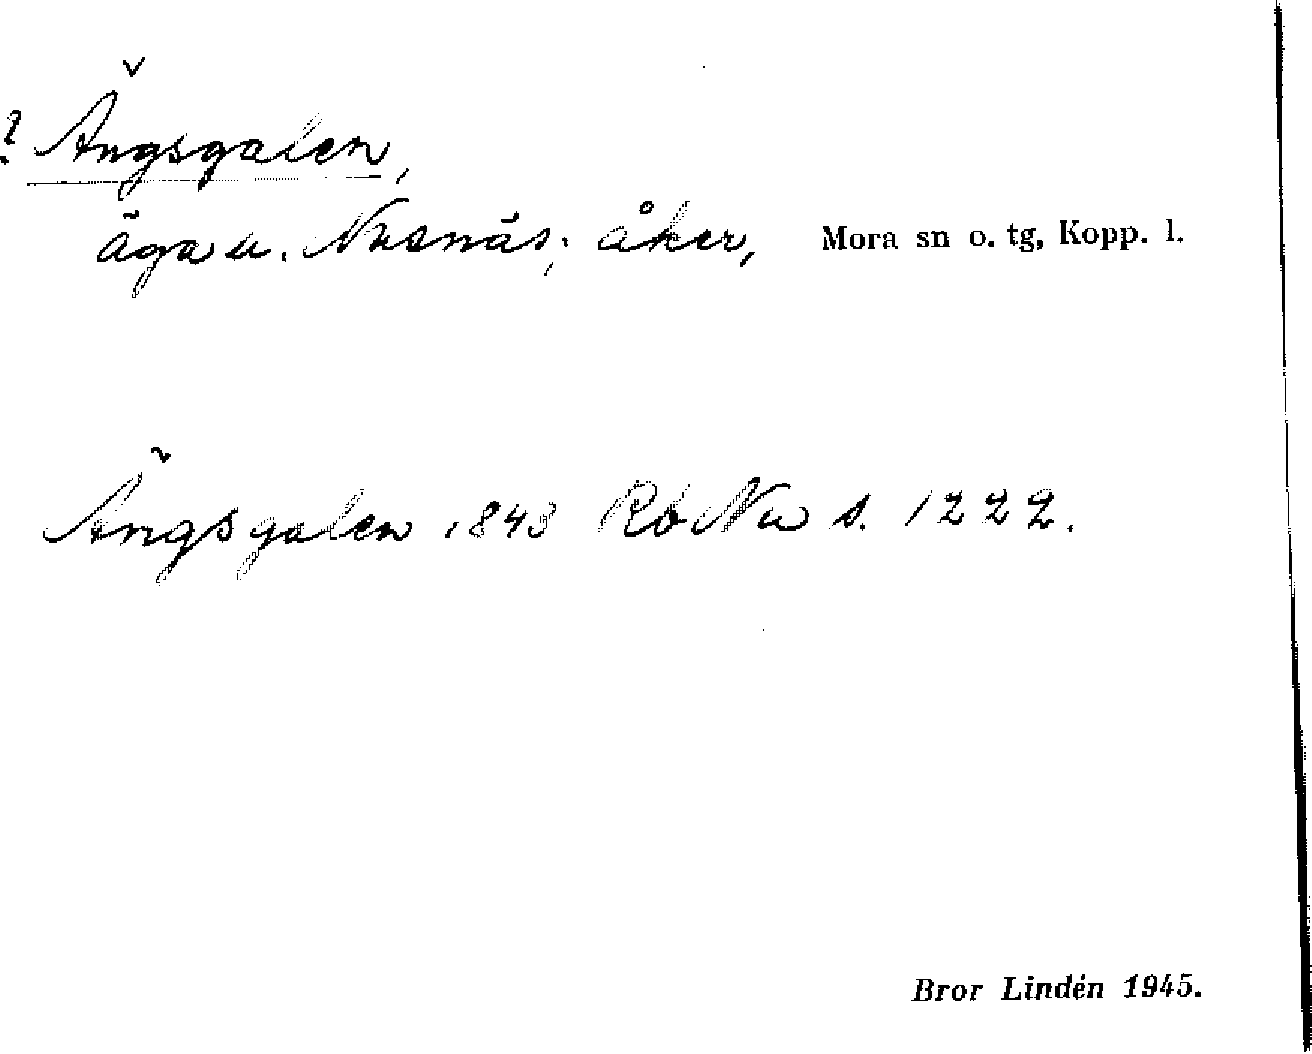 ? Ängsgalen,
äga u. Nusnäs; åker, Mora sn o. tg, Kopp. l.
Ängsgalen 1843 Rb Nu s. 1222.
Bror Lindén 1945.